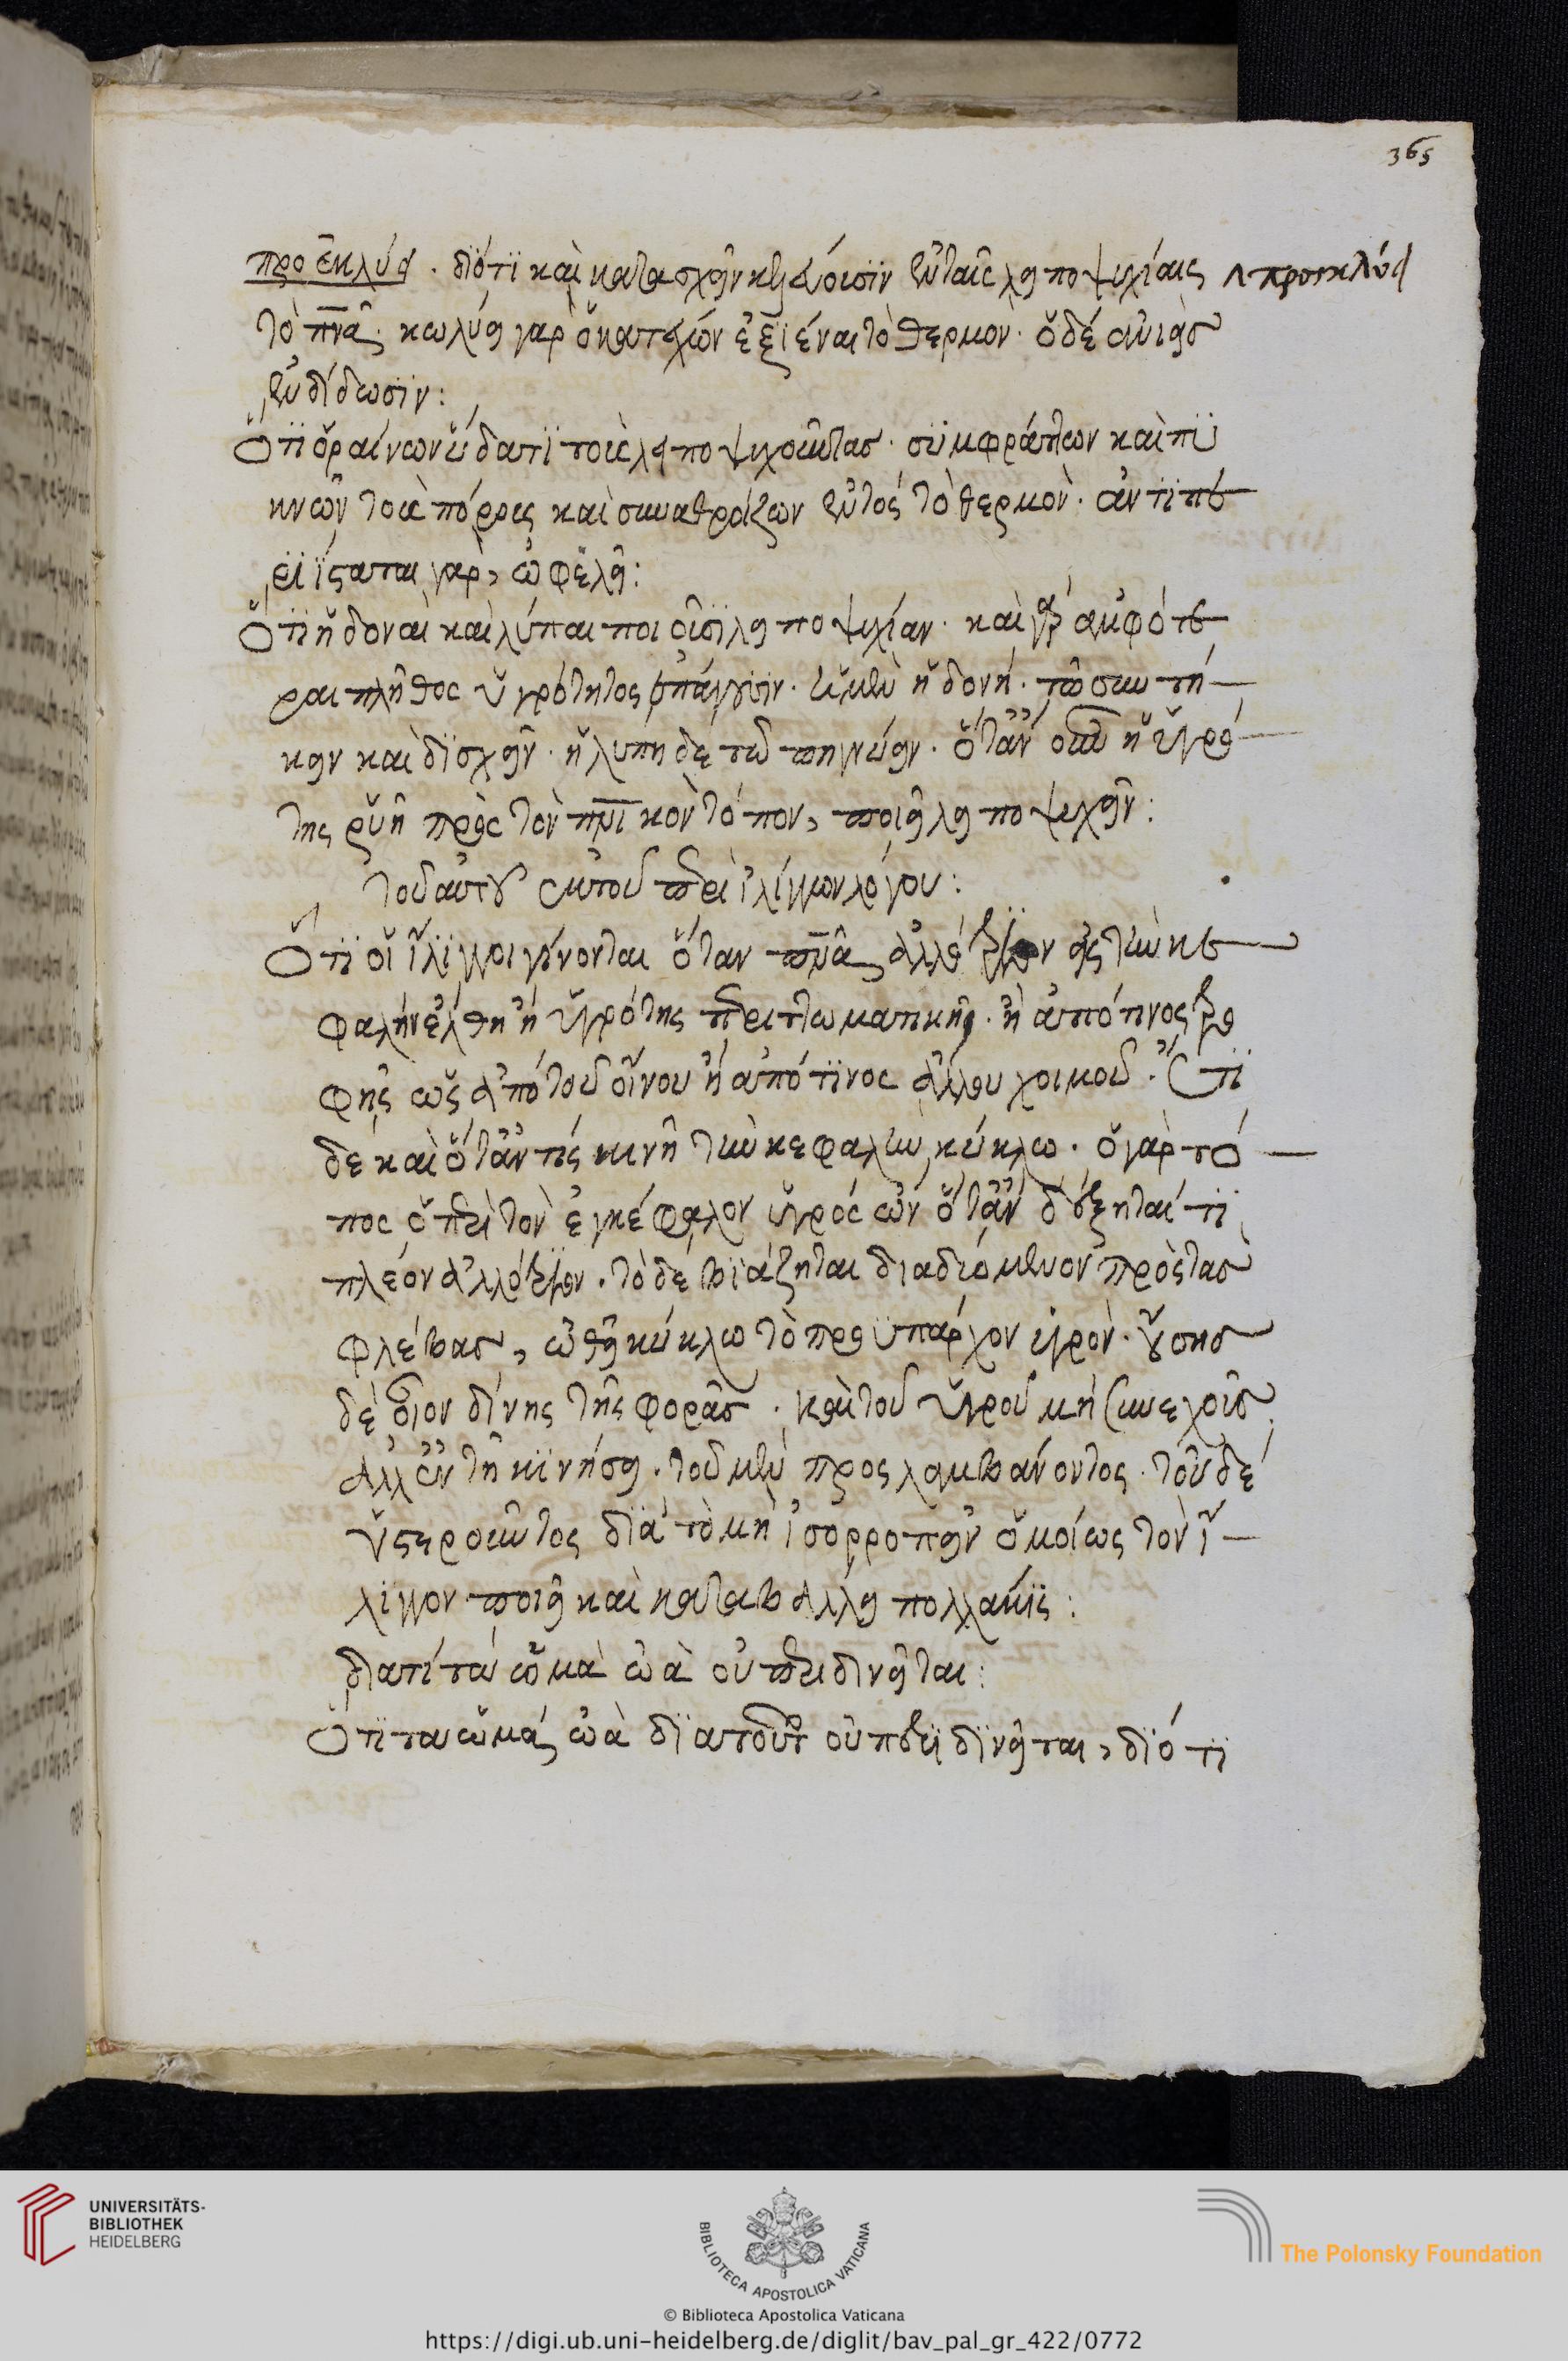 365
προεκλύει. διότι καὶ κατασχεῖν κελεύουσιν ἐν ταῖς λειποψυχίαις ∧ προσεκλύει
τὸ πνᾶ. κωλύει γὰρ ὁ κατέχων ἐξιέναι τὸ θερμὸν. ὁ δέ ἀνιεὶσ
ἐνδίδωσιν:
Ὅτι ὁ ῥαίνων ὕδατι τοὺς λειποψυχοῦντασ. συμφράττων καὶ πυ
κνῶν τοὺς πόρους καὶ συναθροίζων ἐντὸς τὸ θερμὸν. ἀντιπε
ριΐσταται γὰρ, ὠφελεῖ:
Ὅτι ἡδοναὶ καὶ λύπαι ποιοῦσι λειποψυχίαν. καὶ γὰρ ἀμφότε
ραι πλῆθος ὑγρότητος ἐπάγουσιν. ἡ μὲν ἡδονή. τῶ συντή
κειν καὶ διϊσχεῖν. ἡ λύπη δὲ τῶ πηγνύειν. ὅταν οὖν ἡ ὑγρό
της ῥυῆ πρὸς τὸν πνικὸν τόπον, ποιεῖ λειποψυχεῖν:
τοῦ αὐτοῦ ἐκ τοῦ περὶ ἰλίγγων λόγου:
Ὅτι οἱ ἴλιγγοι γίνονται ὅταν πνᾶ ἀλλότριον εἰς τὴν κε
φαλήν ἔλθη ἡ ὑγρότης περιττωματικὴ. ἢ ἀπό τινος τρο
φῆς ὡς ἀπὸ τοῦ οἴνου ἢ ἀπό τινος ἄλλου χυμοῦ. Ἔτι
δὲ καὶ ὅταν τίς κινῆ τὴν κεφαλὴν κύκλω. ὁ γὰρ τό
πος ὁ περὶ τὸν ἐγκέφαλον ὑγρός ὢν ὅταν δέξηται τι
πλέον ἀλλότριον. τὸ δὲ βιάζηται διαδυόμενον πρὸς τὰσ
φλέβασ, ὠθεῖ κύκλω τὸ προϋπάρχον ὑγρὸν. οὔσησ
δὲ οἷον δίνης τῆς φορᾶσ. καὶ τοῦ ὑγροῦ μὴ συνεχοῦσ
ἀλλ' ἐν τῆ κινήσει. τοῦ μὲν προσλαμβάνοντος. τοῦ δὲ
ὑστεροῦντος διὰ τὸ μὴ ἰσορροπεῖν ὁμοίως τὸν ἴ
λιγγον ποιεῖ καὶ καταβάλλει πολλάκις:
διατί τὰ ὠμὰ ὠὰ οὐ περιδινεῖται:
Ὅτι τὰ ὠμὰ ὠὰ διὰ τοῦτο οὐ περιδινεῖται, διότι
UNIVERSITÄTS-
BIBLIOTHEK
HEIDELBERG
BIBLIOTECA APOSTOLICA VATICANA
The Polonsky Foundation
© Biblioteca Apostolica Vaticana
https://digi.ub.uni-heidelberg.de/diglit/bav_pal_gr_422/0772